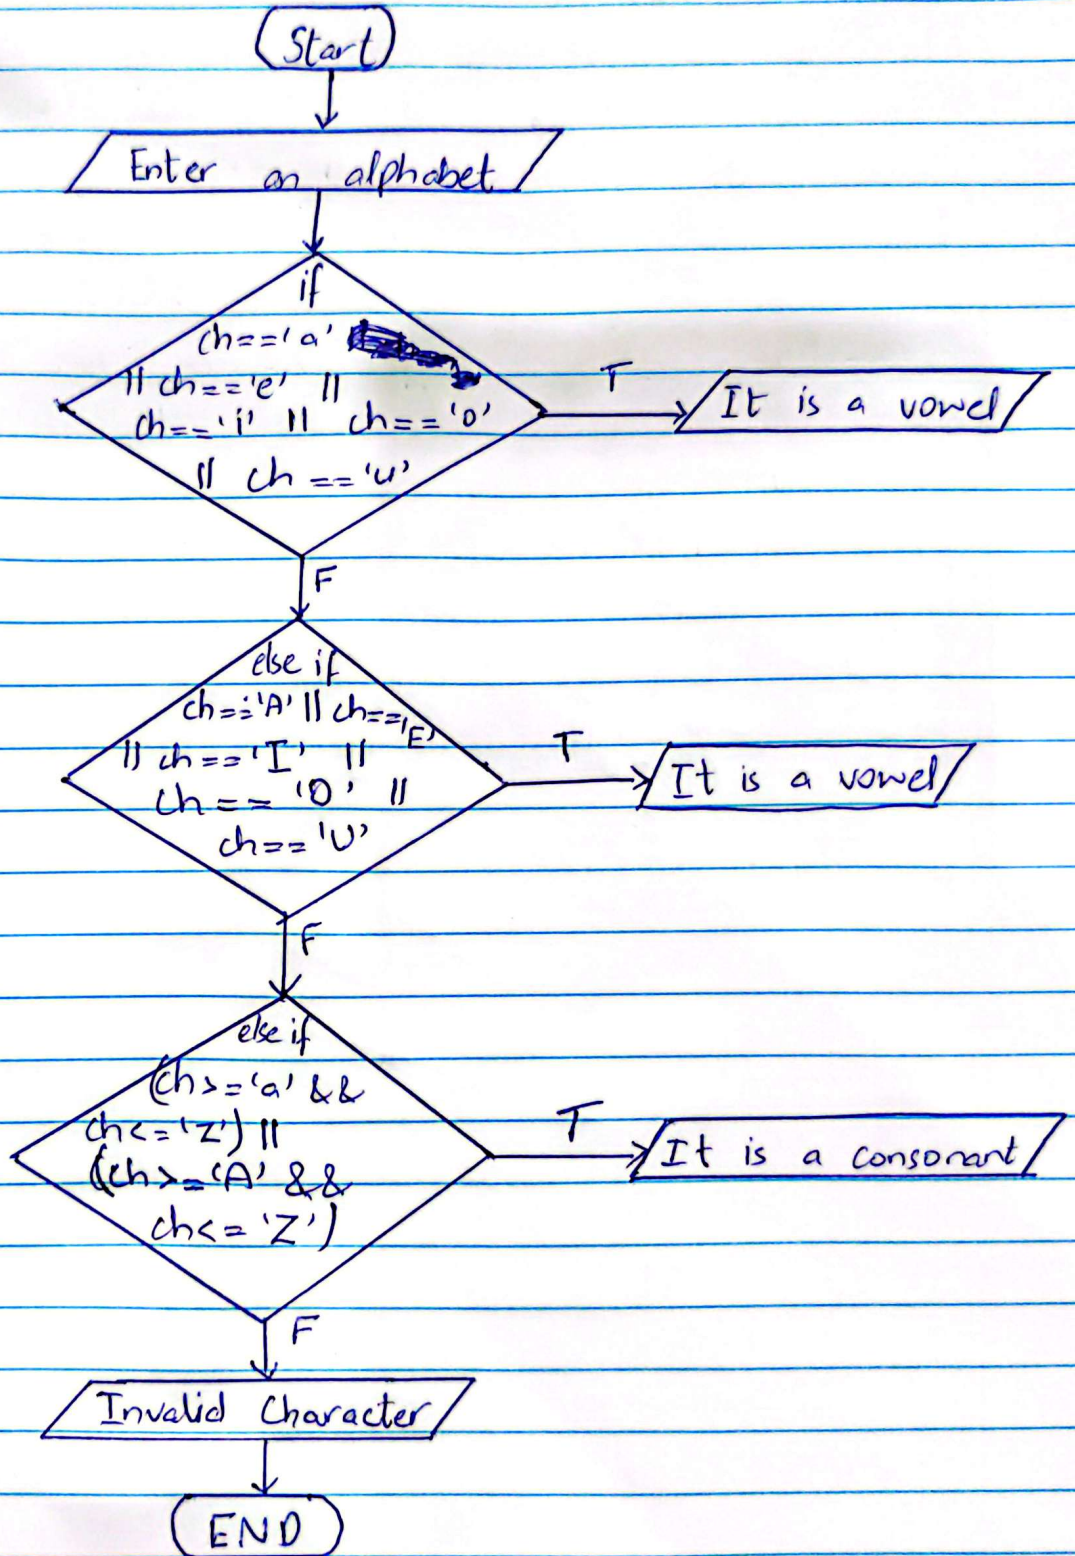 Start
Enter an alphabet
if
ch=='a'
|| ch=='e' ||
ch=='i' || ch=='o'
|| ch=='u'
T
It is a vowel
F
else if
ch=='A' || ch=='E'
|| ch=='I' ||
ch=='O' ||
ch=='U'
T
It is a vowel
F
else if
(ch>='a' &&
ch<='z') ||
(ch>='A' &&
ch<='Z')
T
It is a consonant
F
Invalid Character
END